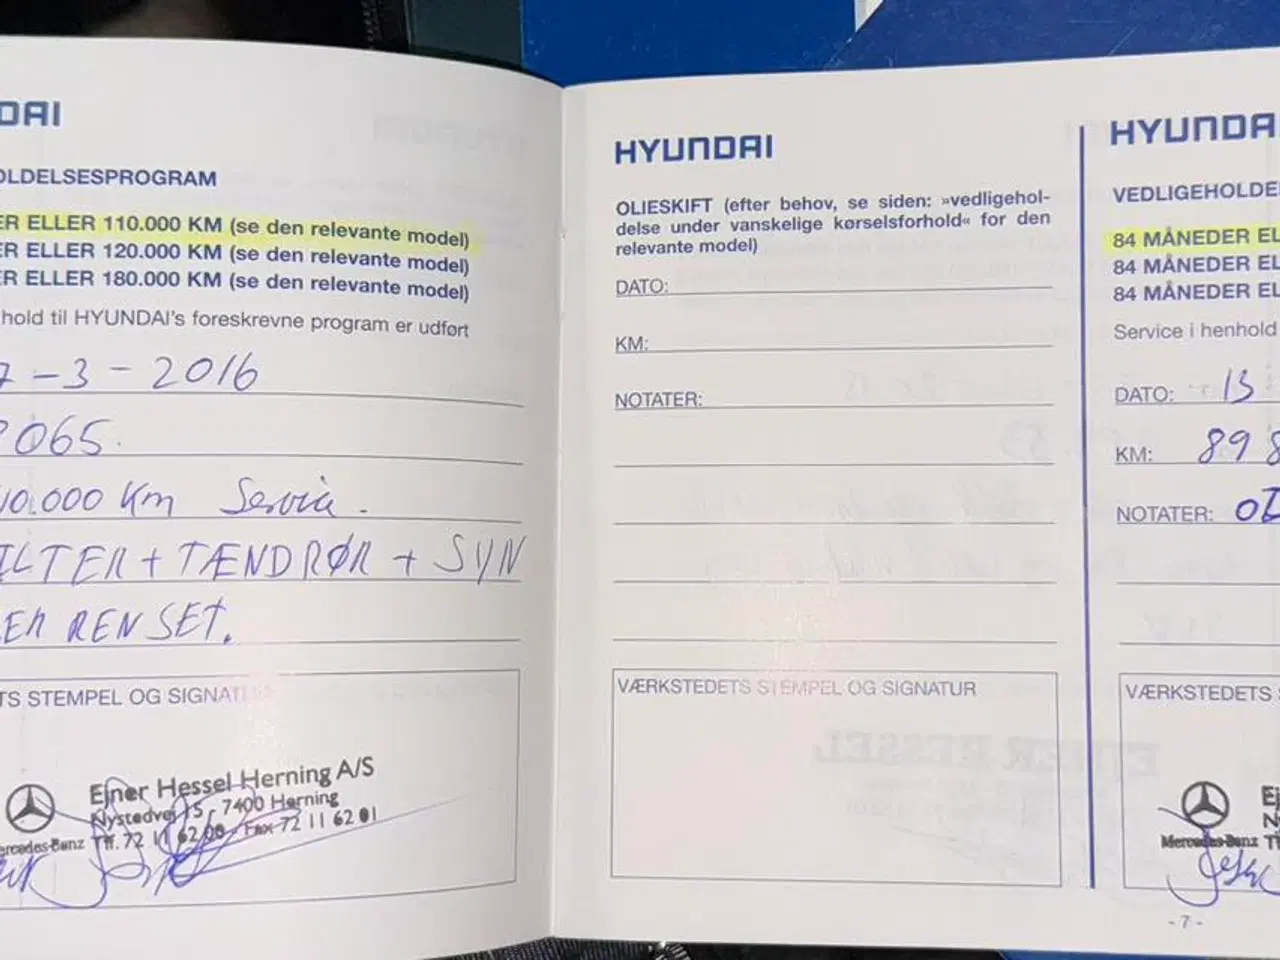 DAI
OLDELSESPROGRAM
ER ELLER 110.000 KM (se den relevante model)
ER ELLER 120.000 KM (se den relevante model)
ER ELLER 180.000 KM (se den relevante model)
hold til HYUNDAI's foreskrevne program er udført
7-3-2016
065.
10.000 Km Service.
ILTER + TÆNDRØR + SYN
ER RENSET.
TS STEMPEL OG SIGNATU
Ejner Hessel Herning A/S
Nystedvej 15, 7400 Herning
Mercedes-Benz Tlf. 72 11 62 00 - Fax 72 11 62 01
HYUNDAI
OLIESKIFT (efter behov, se siden: »vedligehol-
delse under vanskelige kørselsforhold« for den
relevante model)
DATO:
KM:
NOTATER:
VÆRKSTEDETS STEMPEL OG SIGNATUR
HYUNDA
VEDLIGEHOLDE
84 MÅNEDER EL
84 MÅNEDER EL
84 MÅNEDER EL
Service i henhold
DATO: 13
KM: 898
NOTATER: OI
VÆRKSTEDETS S
Ej
Ny
Mercedes-Benz Tl
- 7 -